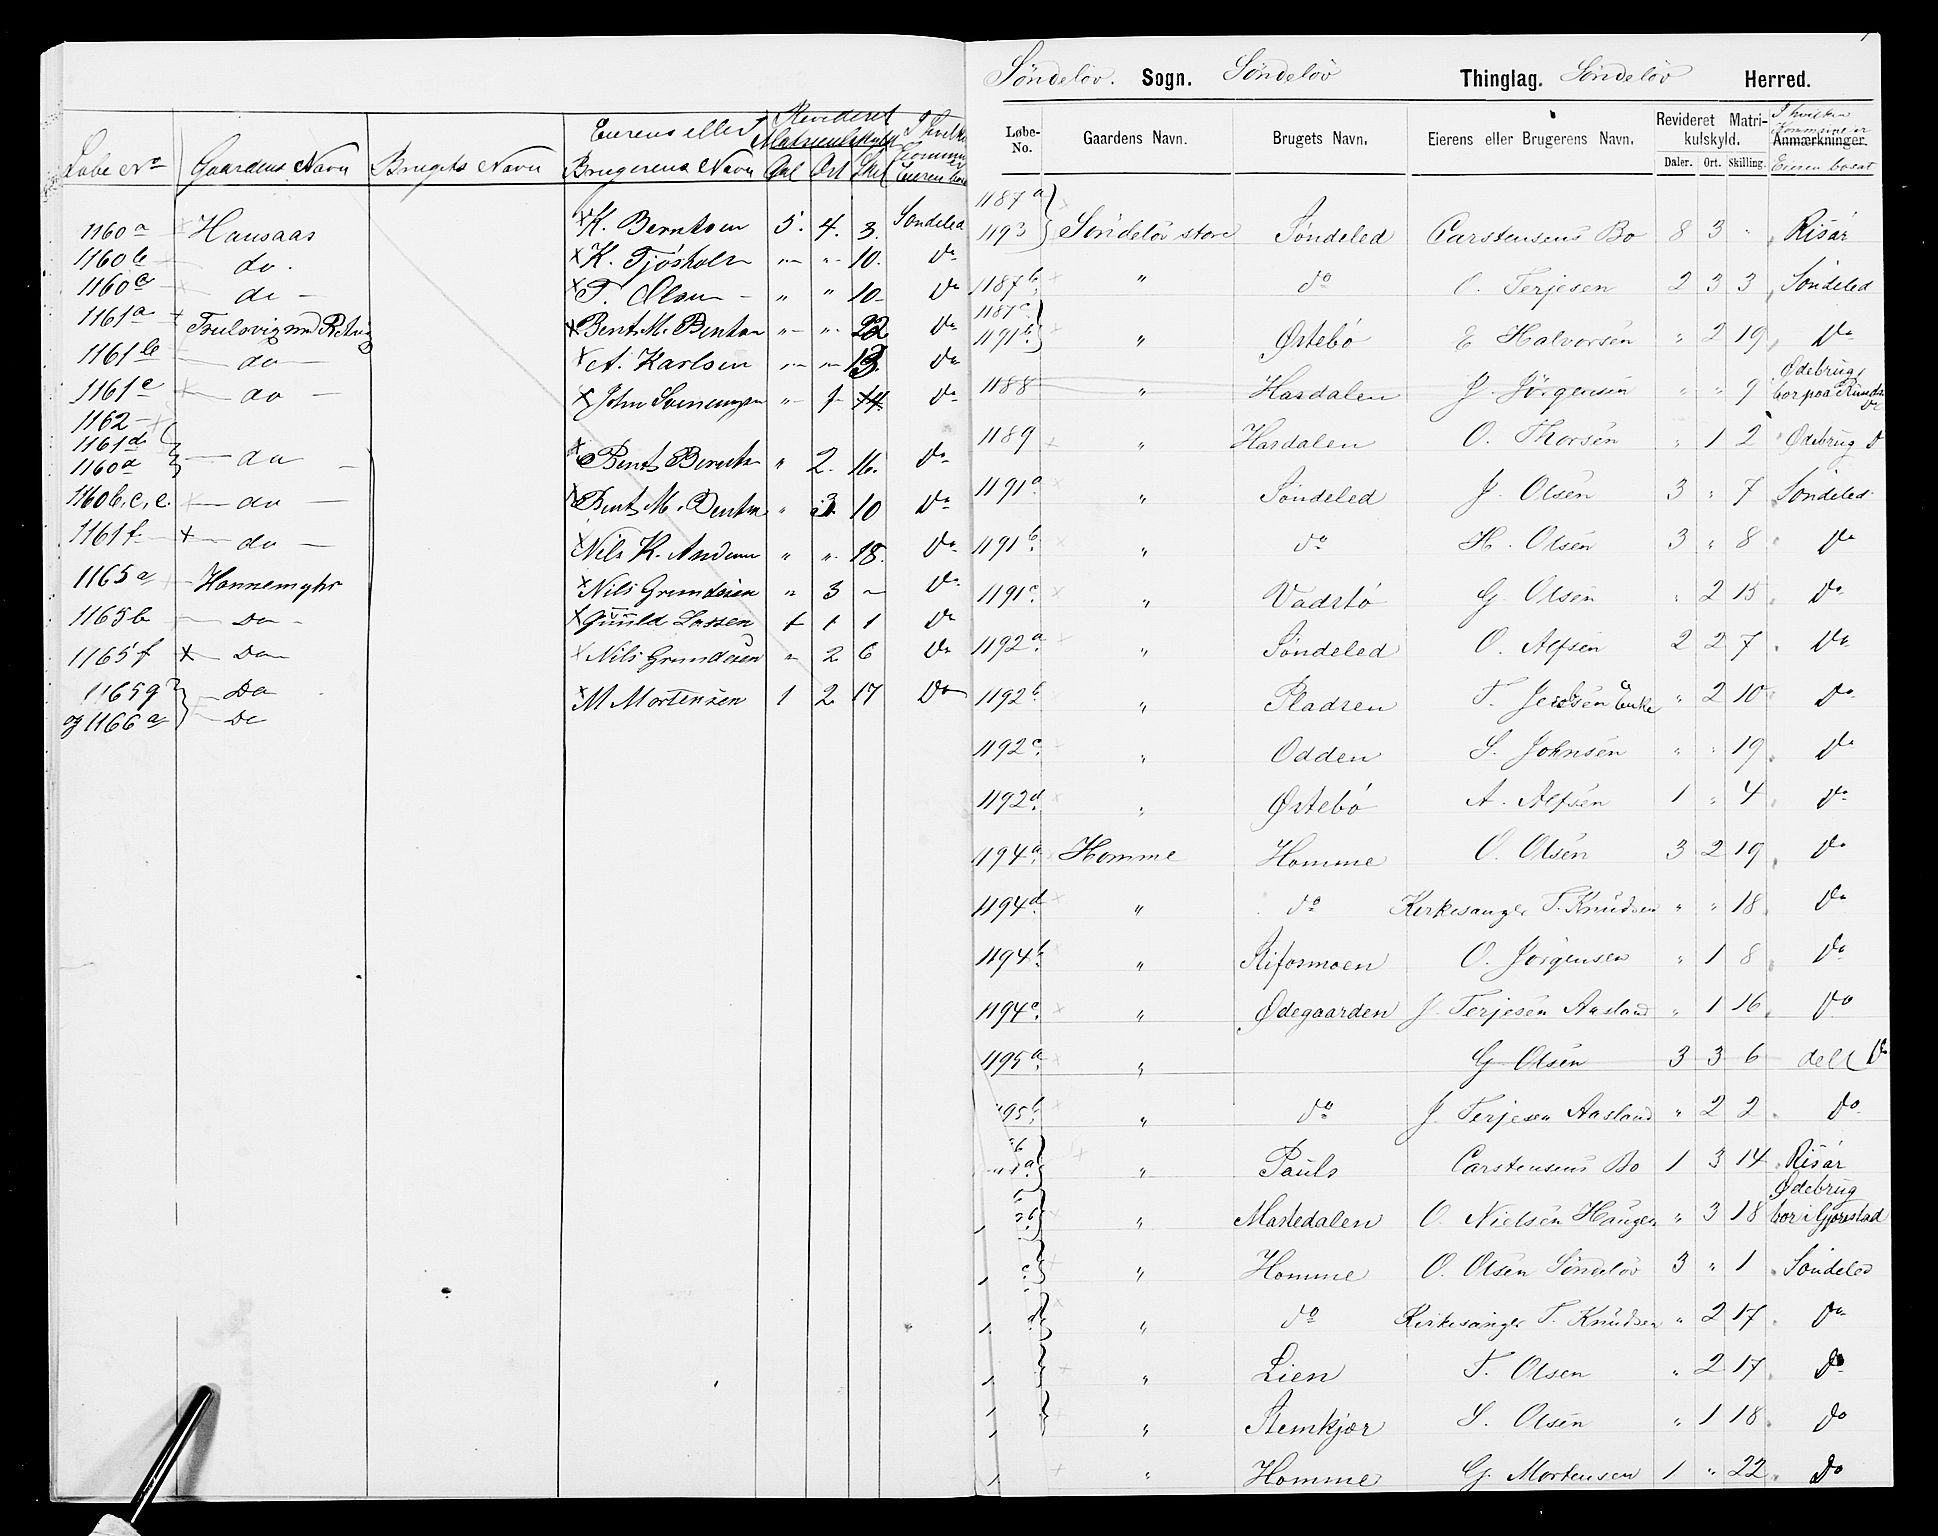 Revideret
Löbe No Gaardens Navn Brugets Navn Eierens eller Brugerens Navn Matriculskyld Dal Ort Skil I hvilken Kommune er Eieren bosat
1160a Hansaas K. Berntsen 5. 4. 3. Söndeled
1160b do. K. Tjösholm " " 10. Do
1160c do T. Olsen " " 10 Do
1161a Bent M. Bentsen " " 22 Do
1161b do A. Karlsen " " 13. Do
1161c do John " 1 14 Do
1162
1161d
1160d do Bent Berntsen " 2. 16. Do
1160b,c,e. do Bent M. Bentsen " 3. 10 Do
1161f do Nils K. Andersen " " 18. Do
1165a Hannemyhr Nils Grundesen " 3 " Do
1165b Do Lassen + 1 1 Do
1165f Do Nils Grundesen " 2 6 Do
1165g Do M Mortensen 1 2 17 Do
og 1166a Do
Söndelöv. Sogn. Söndelöv Thinglag. Söndelöv Herred.
Løbe-No. Gaardens Navn. Brugets Navn. Eierens eller Brugerens Navn. Revideret Matrikulskyld. Daler. Ort. Skilling. I hvilken Kommune er Anmærkninger. Eieren bosat
1187a
1193 Söndelöv store Söndeled Carstensens Bo 8 3 " Risör
1187b " do O. Terjesen 2 3 3 Söndeled
1187c
1191b " Örtebö E Halvorsen " 2 19 Do
1188 " Hasdalen J. Jörgensen " " 9 Ödebrug, bor paa
1189 " Hasdalen O. Thorsen " 1 2 Ödebrug D
1191a " Söndeled J. Olsen 3 " 7 Söndeled
1191b. " do H. Olsen 3 " 8 Do
1191c. " Vadstö G. Olsen " 2 15 Do
1192a " Söndeled O. Alfsen 2 2 7 Do
1192b " Pladsen T. Enke " 2 10 Do
1192c. " Odden S. Johnsen " " 19 Do
1192d " Örtebö A. Alfsen 1 " 4 Do
1194a. Homme Homme O. Olsen 3 2 19 Do
1194d " do Kirkesanger T. Knudsen " " 18 Do
1194b. " O. Jörgensen " 1 8 Do
1194c. " Ödegaarden J. Terjesen Aasland " 1 16 Do
1195a " G Olsen 3 3 6 delt Do
95b " do J. Terjesen Aasland " 2 2 Do
" Pauls Carstensens Bo 1 3 14 Risör
" Mastedalen O. Nielsen Haugen " 3 18 Ödebrug bor i Gjerestad
" Homme O. Olsen Söndelöv 3 " 1 Söndeled
" do Kirkesanger T. Knudsen " 2 17 Do
" Lien T. Olsen " 2 17 Do
" Stemkjær S. Olsen " 1 18 Do
" Homme G. Mortensen 1 " 22 Do